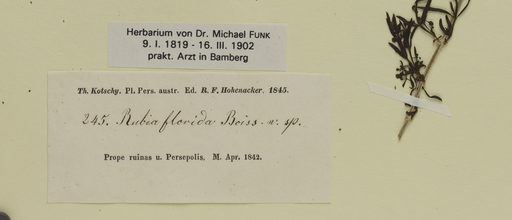 Herbarium von Dr. Michael FUNK
9. I. 1819 - 16. III. 1902
prakt. Arzt in Bamberg
Th. Kotschy. Pl. Pers. austr. Ed. R. F. Hohenacker. 1845.
245. Rubia florida Boiss. n. sp.
Prope ruinas u. Persepolis, M. Apr. 1842.